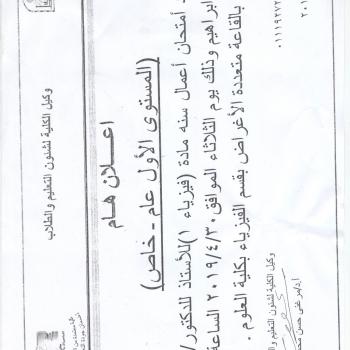 وكيل الكلية لشئون التعليم والطلاب
اعلان هام
(المستوى الأول عام - خاص)
أمتحان أعمال سنه مادة (فيزياء ١)للأستاذ للدكتور/
ابراهيم وذلك يوم الثلاثاء الموافق٢٠١٩/٤/٣٠ الساعة
بالقاعة متعددة الأغراض بقسم الفيزياء بكلية العلوم .
وكيل الكلية لشئون التعليم